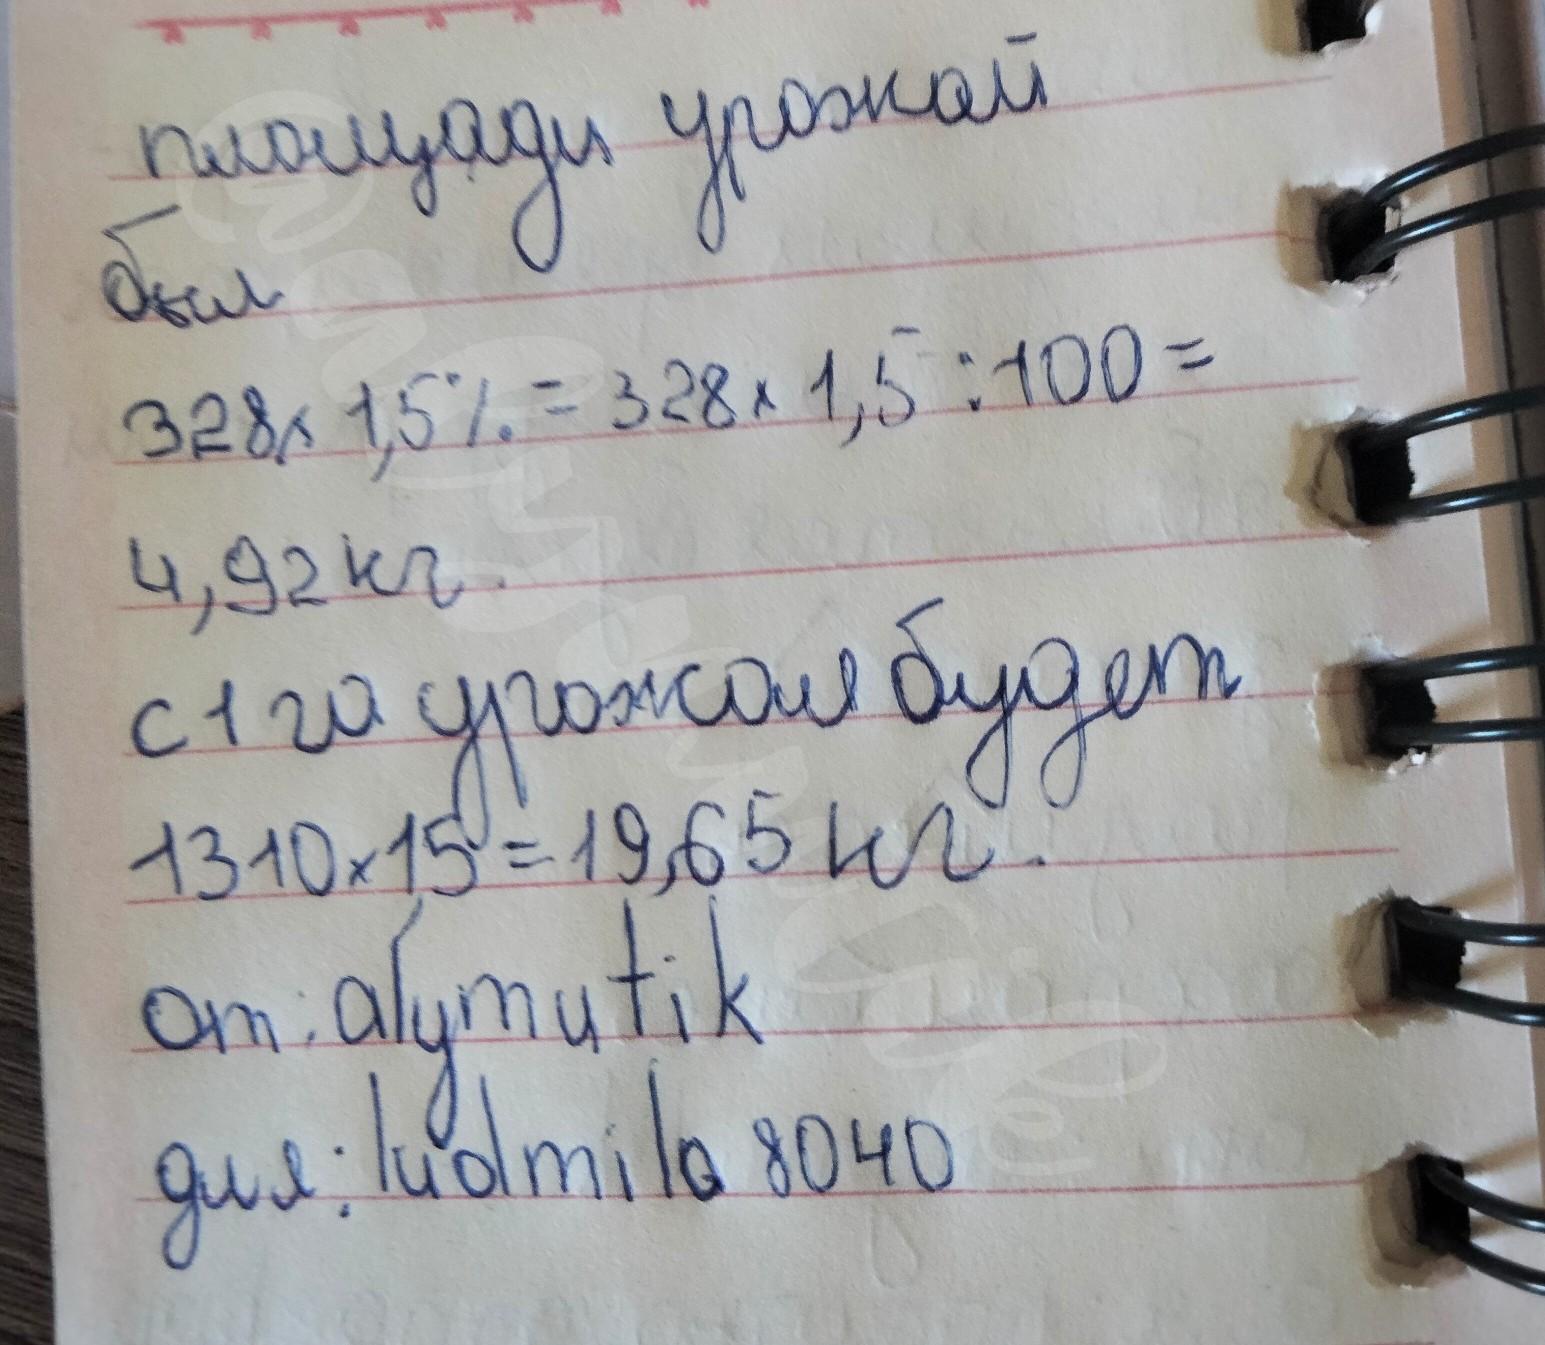 площади урожай
был
328 x 1,5%. = 328 x 1,5 : 100 =
4,92 кг.
с 1 га урожая будет
1310 x 15 = 19,65 кг.
от: alymutik
для: ludmila 8040